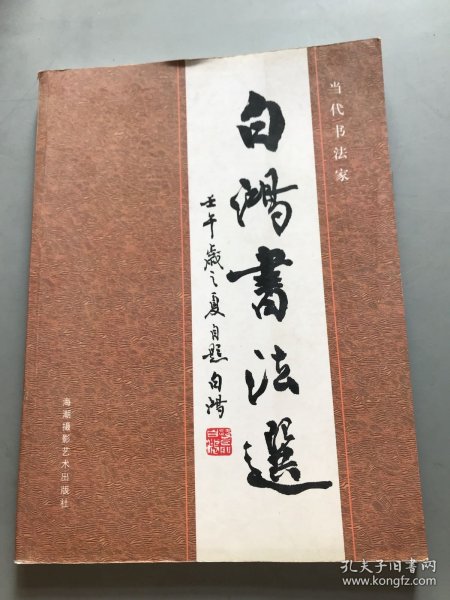 当代书法家
白鸿書法選
壬午歲之夏自题白鸿
海潮摄影艺术出版社
孔夫子旧书网
www.kongfz.com